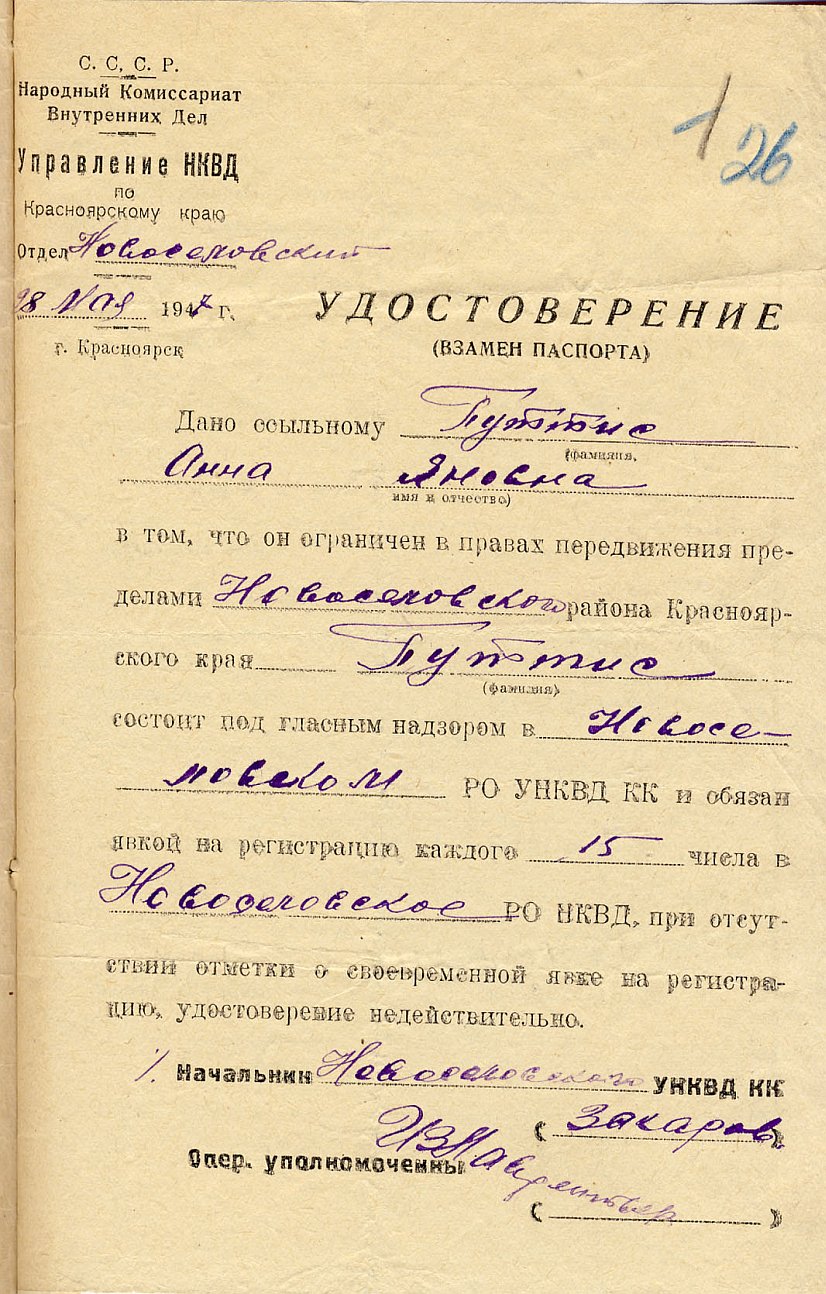 С. С, С. Р.
Народный Комиссариат
Внутренних Дел
Управление НКВД
по
Красноярскому краю
Отдел Новоселовский
28 Мая 1947 г.
г. Красноярск
1 26
УДОСТОВЕРЕНИЕ
(ВЗАМЕН ПАСПОРТА)
Дано ссыльному Путтис
(фамилия,
Анна Яновна
имя и отчество)
в том, что он ограничен в правах передвижения пре-
делами Новоселовского района Краснояр-
ского края Путтис
(фамилия)
состоит под гласным надзором в Новосе-
ловском РО УНКВД КК и обязан
явкой на регистрацию каждого 15 числа в
Новоселовское РО НКВД, при отсут-
ствии отметки о своевременной явке на регистра-
цию, удостоверение недействительно.
Начальник Новоселовского УНКВД КК
( Захаров )
Опер. уполномоченны
( )